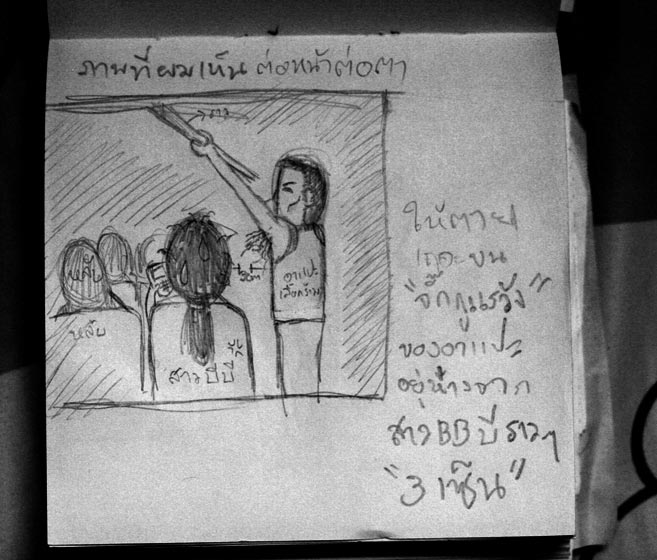 ภาพที่ผมเห็น ต่อหน้าต่อตา
ราว
หลับ
หลับ
สาวบีบี
อาแปะ
เสื้อกล้าม
ให้ตาย
เถอะ ขน
"จั๊กกูแร้วัง"
ของอาแปะ
อยู่ห่างจาก
สาวBBบีราวๆ
"3 เซ็น"